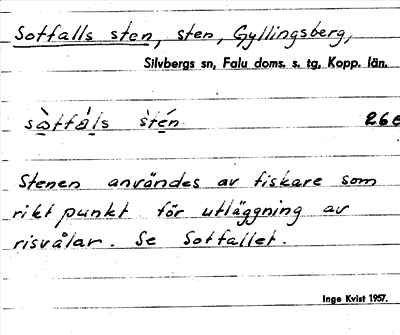 Sotfalls sten, sten, Gyllingsberg,
Silvbergs sn, Falu doms. s. tg, Kopp. län.
sòtfáls stén 26e
Stenen användes av fiskare som
riktpunkt för utläggning av
risvålar. Se Sotfallet.
Inge Kvist 1957.